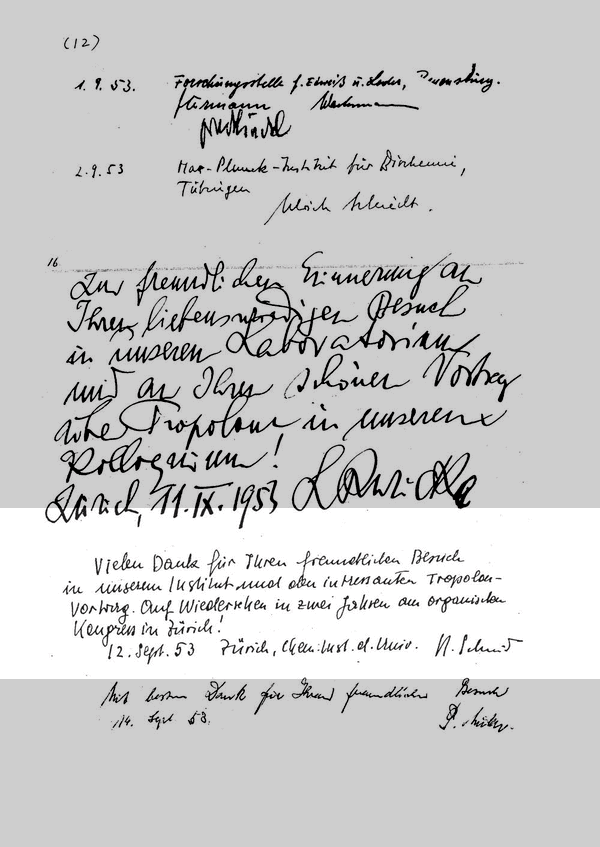 (12)
1.9.53. Forschungsstelle f. Eiweiß u. Leder, Regensburg.
2.9.53 Max-Planck-Institut für Biochemie,
Tübingen
Ulrich Schmidt.
16
Zur freundlichen Erinnerung an
Ihren liebenswürdigen Besuch
in unseren Laboratorium
und an Ihren schönen Vortrag
über Tropolone in unserem
Kolloquium!
Zürich, 11.IX.1953 L Ruzicka
Vielen Dank für Ihren freundlichen Besuch
in unserem Institut und den interessanten Tropolon-
Vortrag. Auf Wiedersehen in zwei Jahren am organischen
Kongress in Zürich!
12. Sept. 53 Zürich, Chem. Inst. d. Univ. H. Schmid
Mit bestem Dank für Ihren freundlichen Besuch
14. Sept 53.